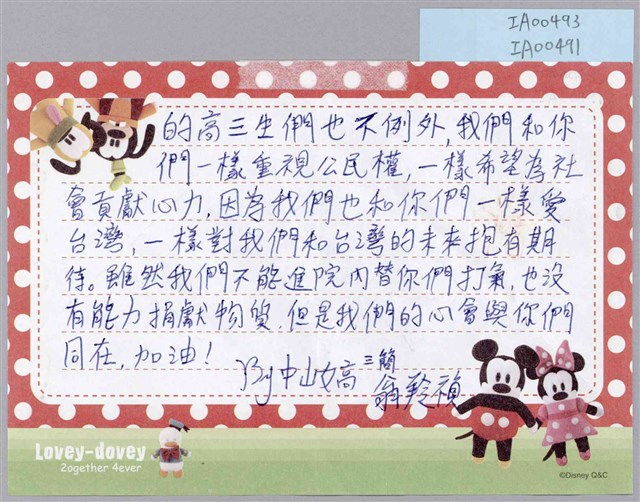 IA00493
IA00491
的高三生們也不例外，我們和你
們一樣重視公民權，一樣希望為社
會貢獻心力，因為我們也和你們一樣愛
台灣，一樣對我們和台灣的未來抱有期
待。雖然我們不能進院內替你們打氣，也沒
有能力捐獻物質，但是我們的心會與你們
同在，加油！
By 中山女高 三簡 翁羚禎
Lovey-dovey
2ogether 4ever
©Disney Q&C